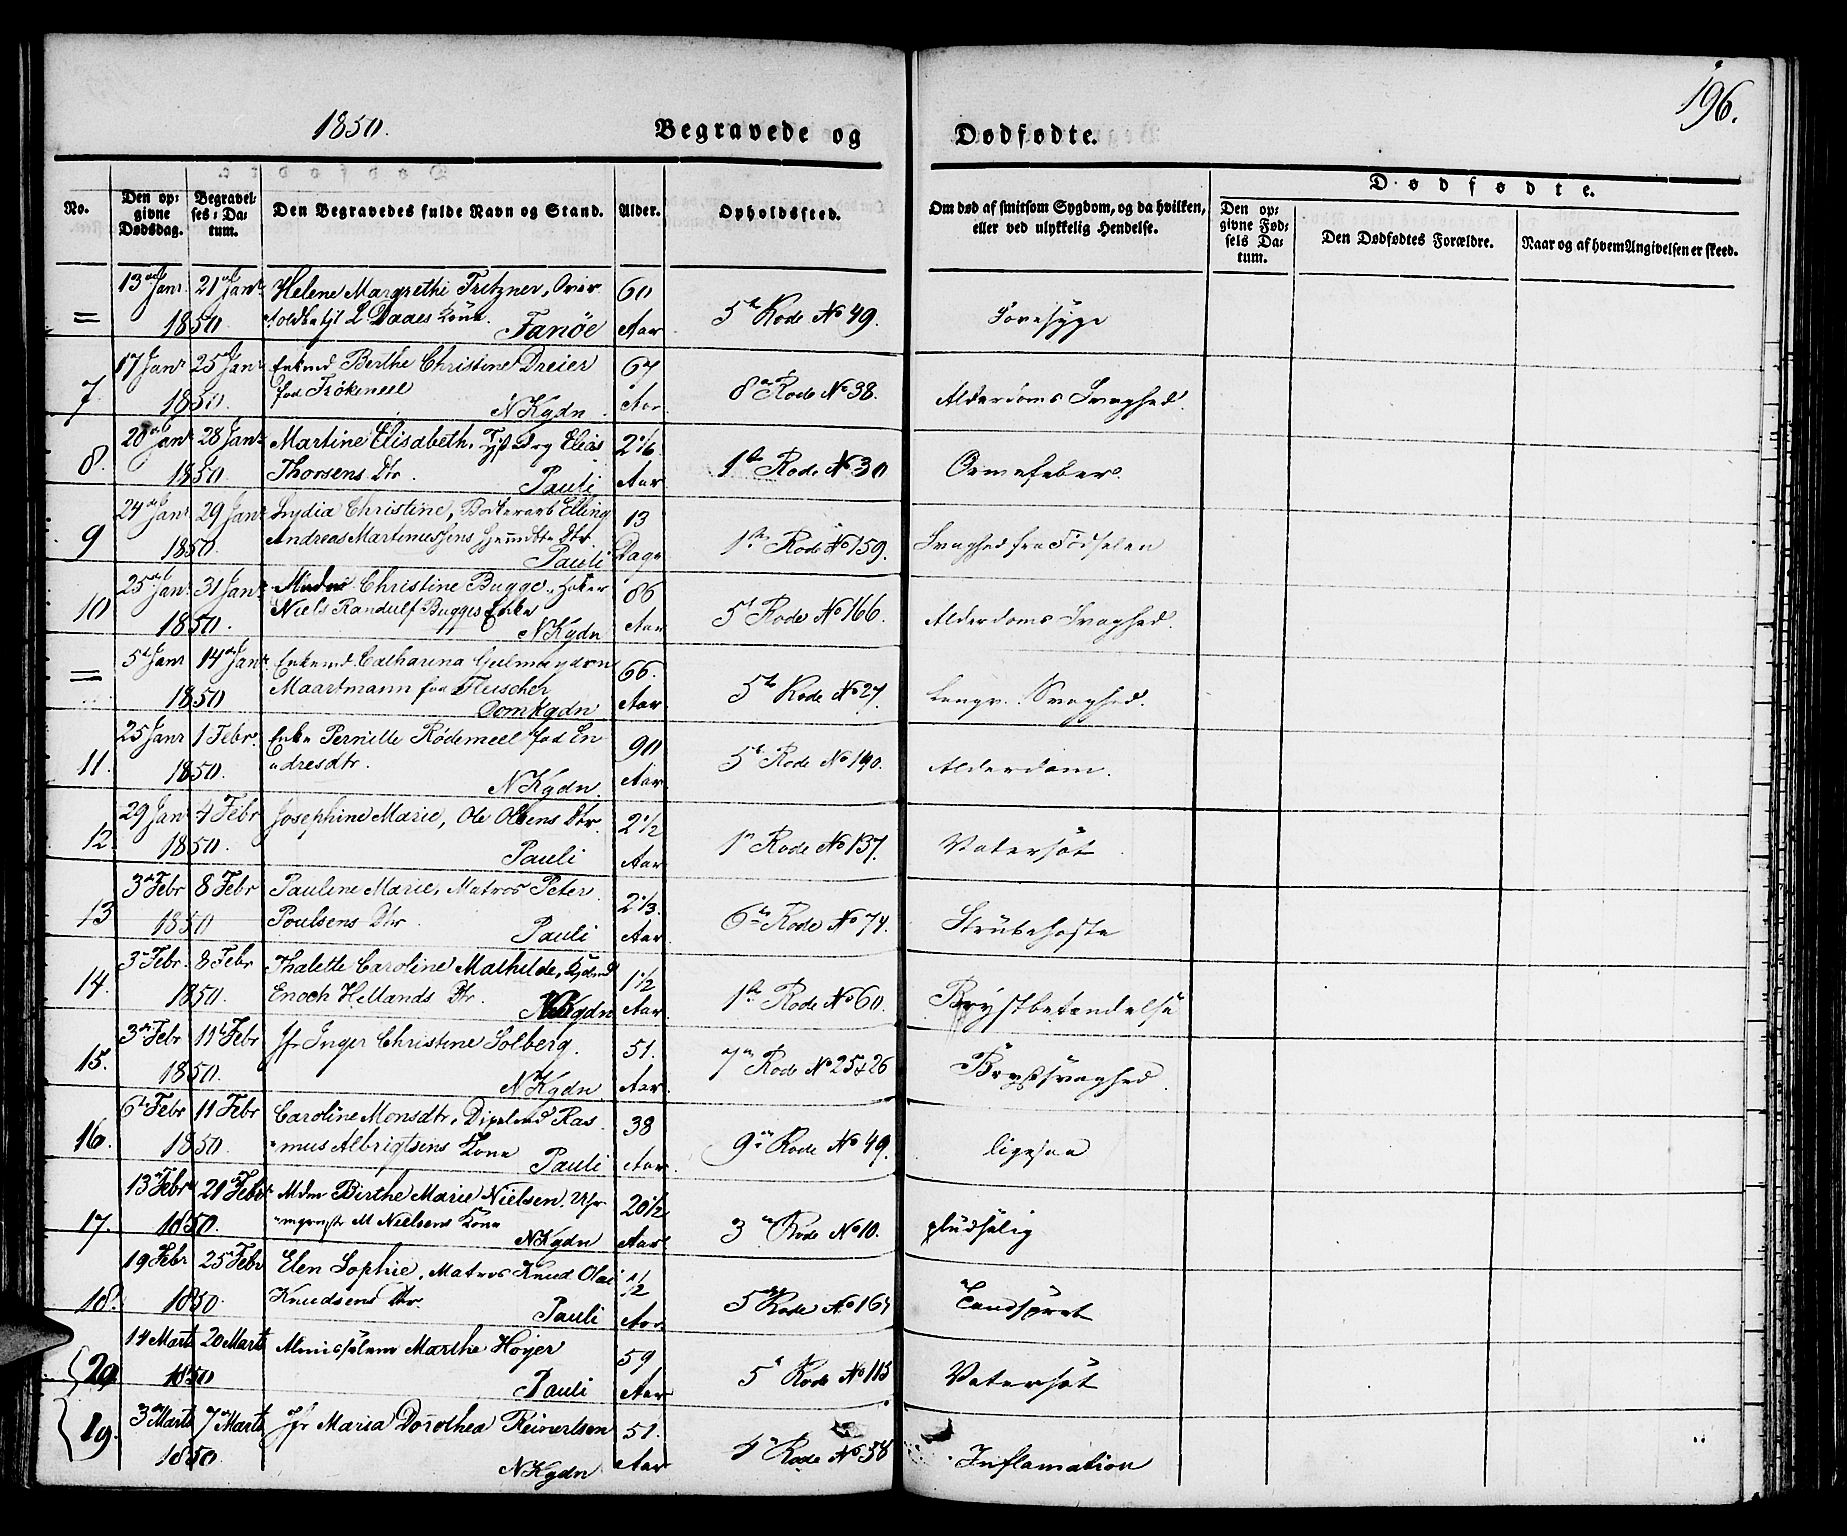 196.
1850. Begravede og Dødfødte.
Dødfødte.
No. Den opgivne Dødsdag. Begravelses-Datum. Den Begravedes fulde Navn og Stand. Alder. Opholdssted. Om død af smitsom Sygdom, og da hvilken, eller ved ulykkelig Hendelse. Den opgivne Fødsels Datum. Den Dødfødtes Forældre. Naar og af hvem Angivelsen er skeed.
= 13 Janr 21 Janr Helene Margrethe Fritzner, Over 60
1850 toldbetjt L Daaes Kone. Fanöe Aar 5t Rode No 49.
17 Janr 25 Janr Enkemd Berthe Christine Dreier 67
7 1850. fød NKgdn Aar 8 Rode No 38. Alderdoms Svaghed.
20 Janr 28 Janr Martine Elisabeth, Elias 2 1/6
8. 1850 Thorsens Dtr. Pauli Aar 1ste Rode No 30 Ormefeber
24 Janr 29 Janr Lydia Christine, Elling 13
9 1850. Andreas Martinussens Dtr Pauli Dage 1ste Rode No 159. Svaghed fra Födselen
25 Janr 31 Janr Christine Bugge, Høker 86
10 1850. Niels Randulf Bugges Enke NKgdn Aar 5t Rode No 166. Alderdoms Svaghed.
= 5t Janr 14 Janr Enkemd Catharina 66.
1850 Maartmann fød Fleischer Domkgdn Aar 5te Rode No 27. Svaghed.
25 Janr 1 Febr. Enke Pernille Rödemeel fød En 90
11. 1850. dresdtr. NKgdn. Aar 5t Rode No 190. Alderdom.
29 Jan 4 Febr Josephine Marie, Ole Olsens Dtr. 2 1/2
12. 1850. Pauli Aar 1 Rode No 137. Vatersot
3 Febr 8 Febr Pauline Marie, Matros Peter 2 1/3.
13 1850 Poulsens Dtr Pauli Aar 6te Rode No 74. Strubehoste
3 Febr. 8 Febr Thalette Caroline Mathilde, 1 1/2
14. 1850. Enoch Hellands Dtr. NKgdn Aar 1ste Rode No 60. Brystbetændelse
3 Febr 11 Febr Jfr Inger Christine Solberg. 51.
15. 1850. NKgdn Aar. 7 Rode No 25 & 26 Brystsvaghed.
6te Febr 11 Febr Caroline Monsdtr, Ras 38
16. 1850. mus Albrigtsens Kone Pauli Aar. 9 Rode No 49. ligesaa
13 Febr 21 Febr Mdm Birthe Marie Nielsen, Uhr 20 1/2
17. 1850. M Nielsens Kone NKgdn Aar 3 Rode No 10. pludselig
19 Febr 25 Febr Elen Sophie, Matros Knud Olai 1/2
18. 1850 Knudsens Dtr. Pauli Aar 5 Rode No 164 Tandspræt
14 Marts 20 Marts Marthe Höyer 59
20 1850 Pauli Aar 5 Rode No 115 Vatersot
3 Marts 7 Marts Jfr Maria Dorothea Reinertsen 51.
19. 1850 NKgdn Aar 4 Rode No 58 Inflamation